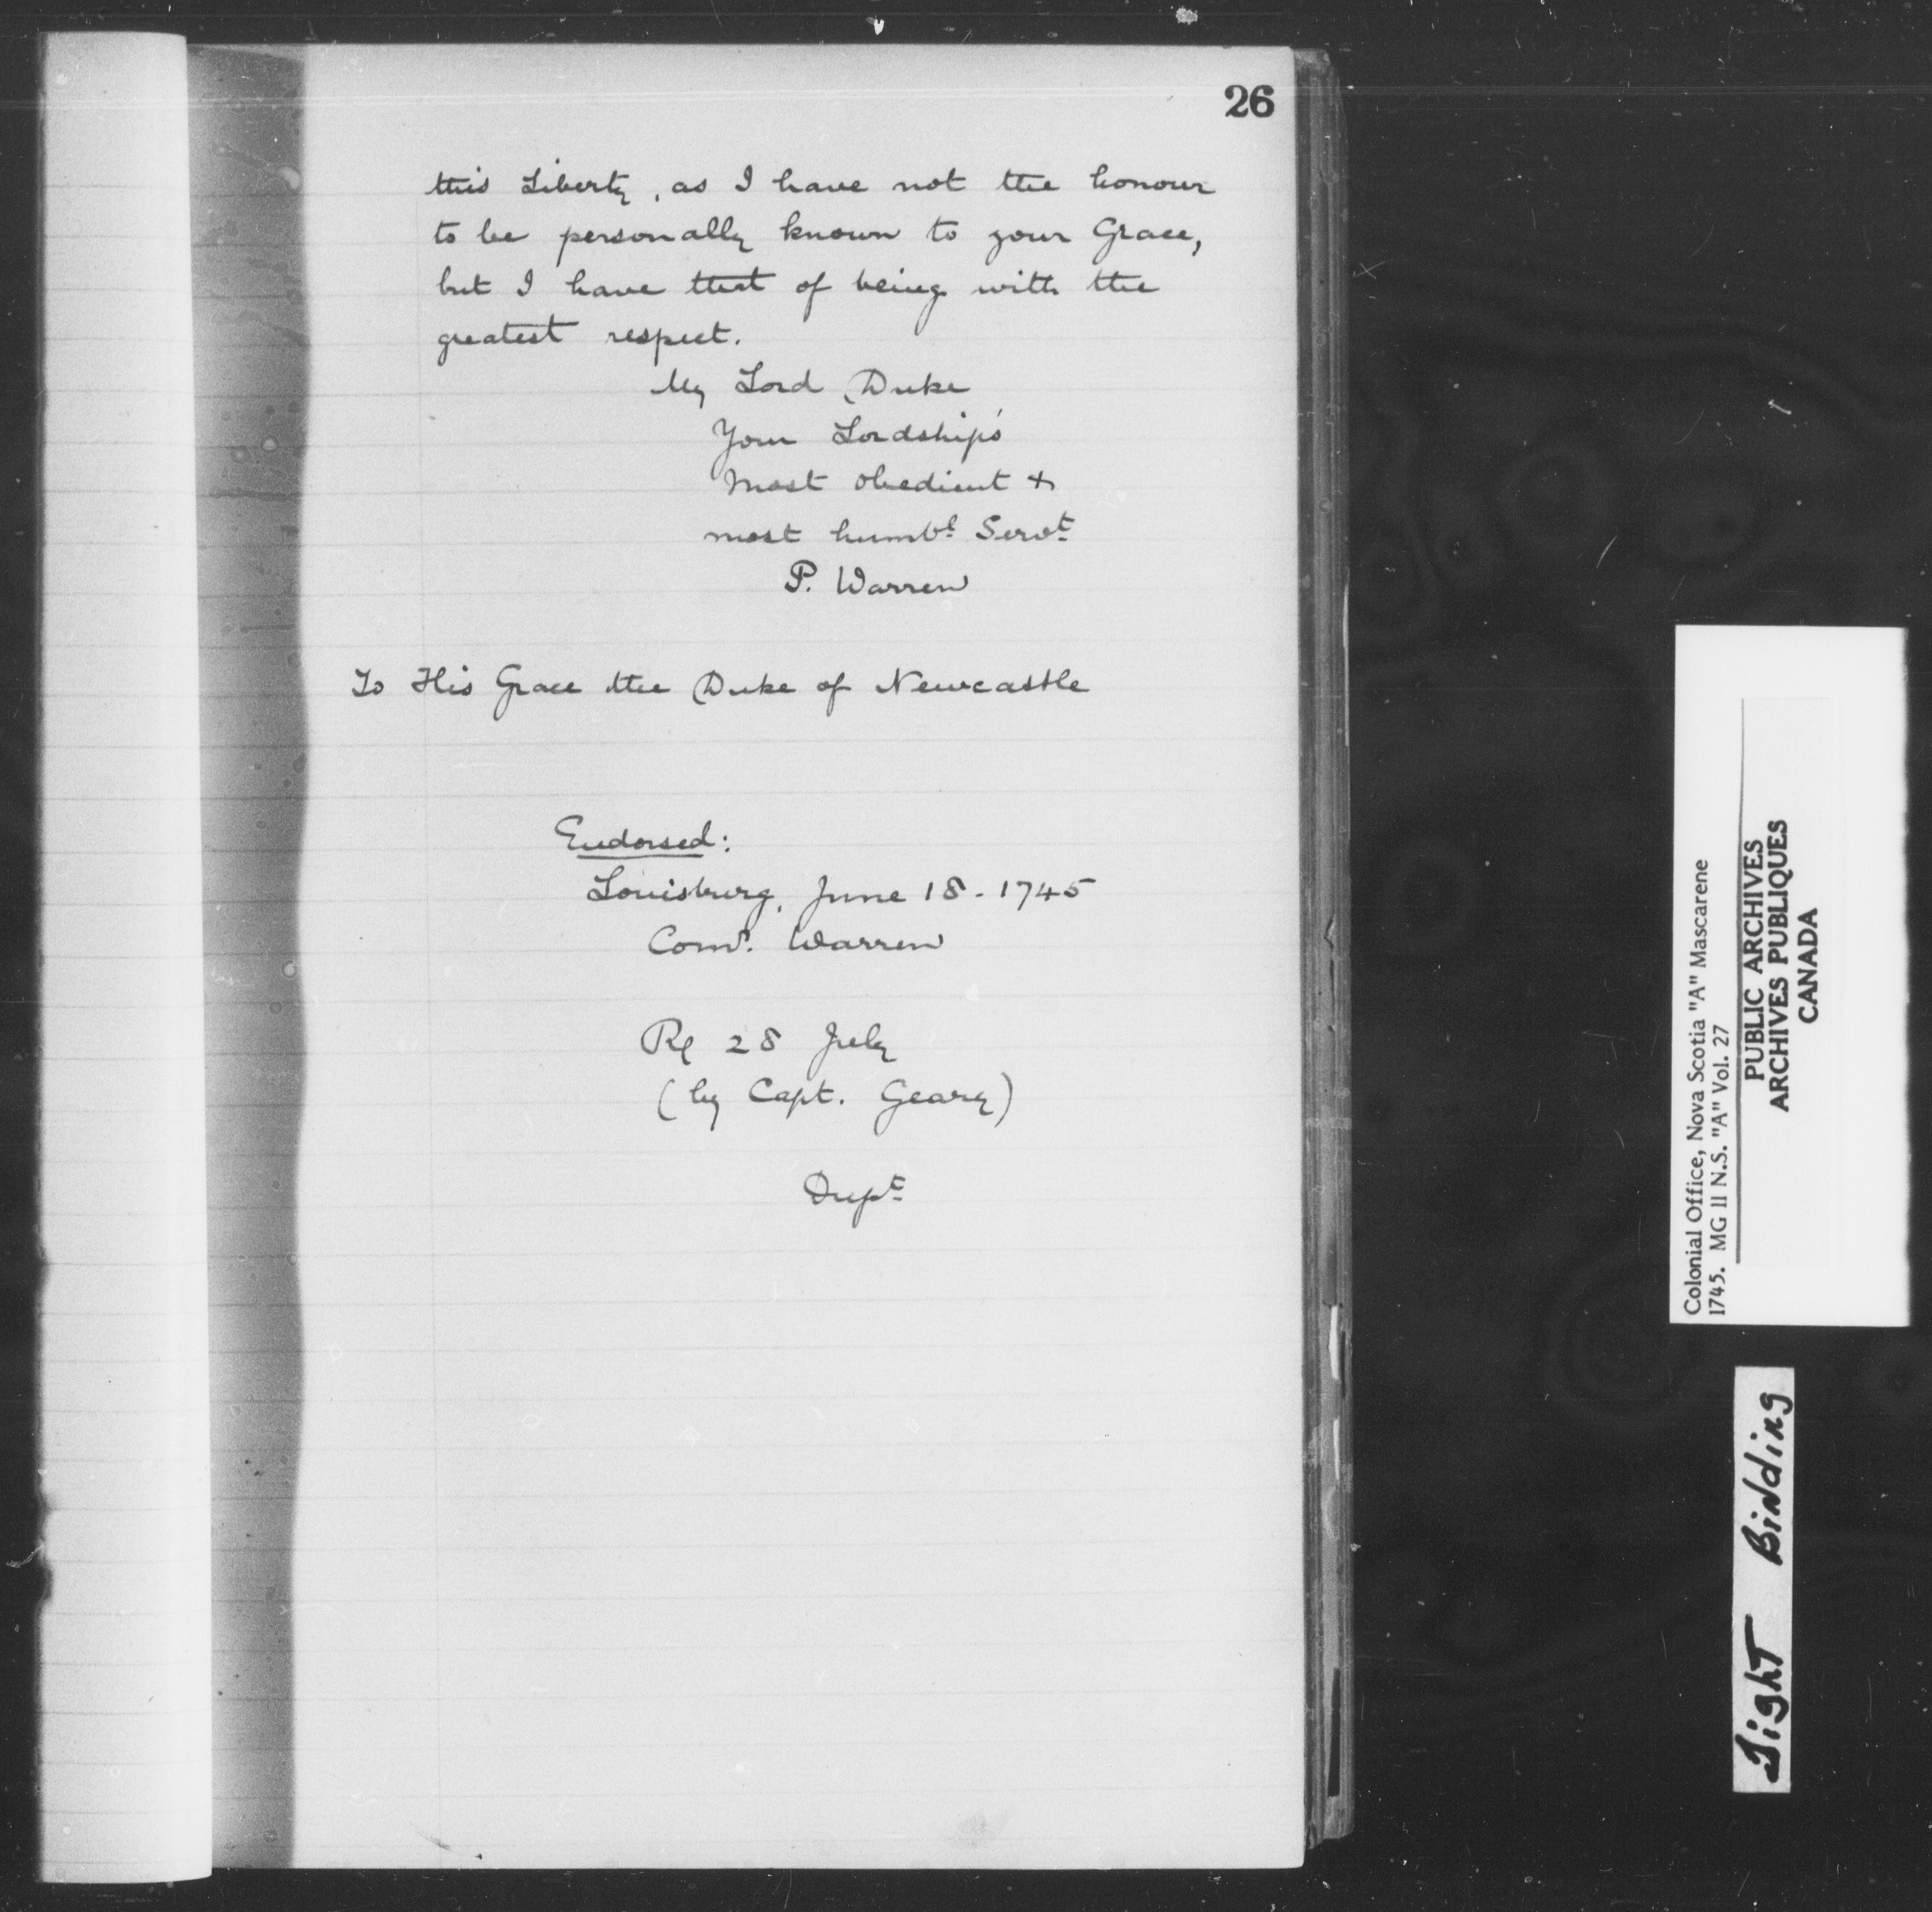 26
this Liberty, as I have not the honour
to be personally known to your Grace,
but I have that of being with the
greatest respect.
My Lord Duke
Your Lordship's
Most obedient &
most humbl Servt
P. Warren
To His Grace the Duke of Newcastle
Endorsed:
Louisburg, June 18 - 1745
Comr. Warren
28 July
(by Capt. Geary)
Dupt
Colonial Office, Nova Scotia "A" Mascarene
1745. MG 11 N.S. "A" Vol. 27
PUBLIC ARCHIVES
ARCHIVES PUBLIQUES
CANADA
Tight Binding